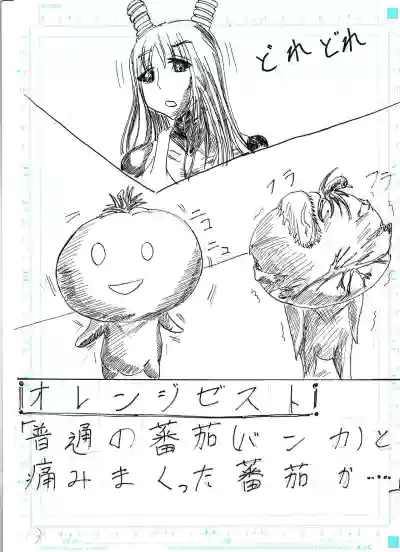 どれどれ
ニコニコ
フラ
フラ
オレンジゼスト
「普通の蕃茄(バンカ)と
痛みまくった蕃茄か‥‥」
13